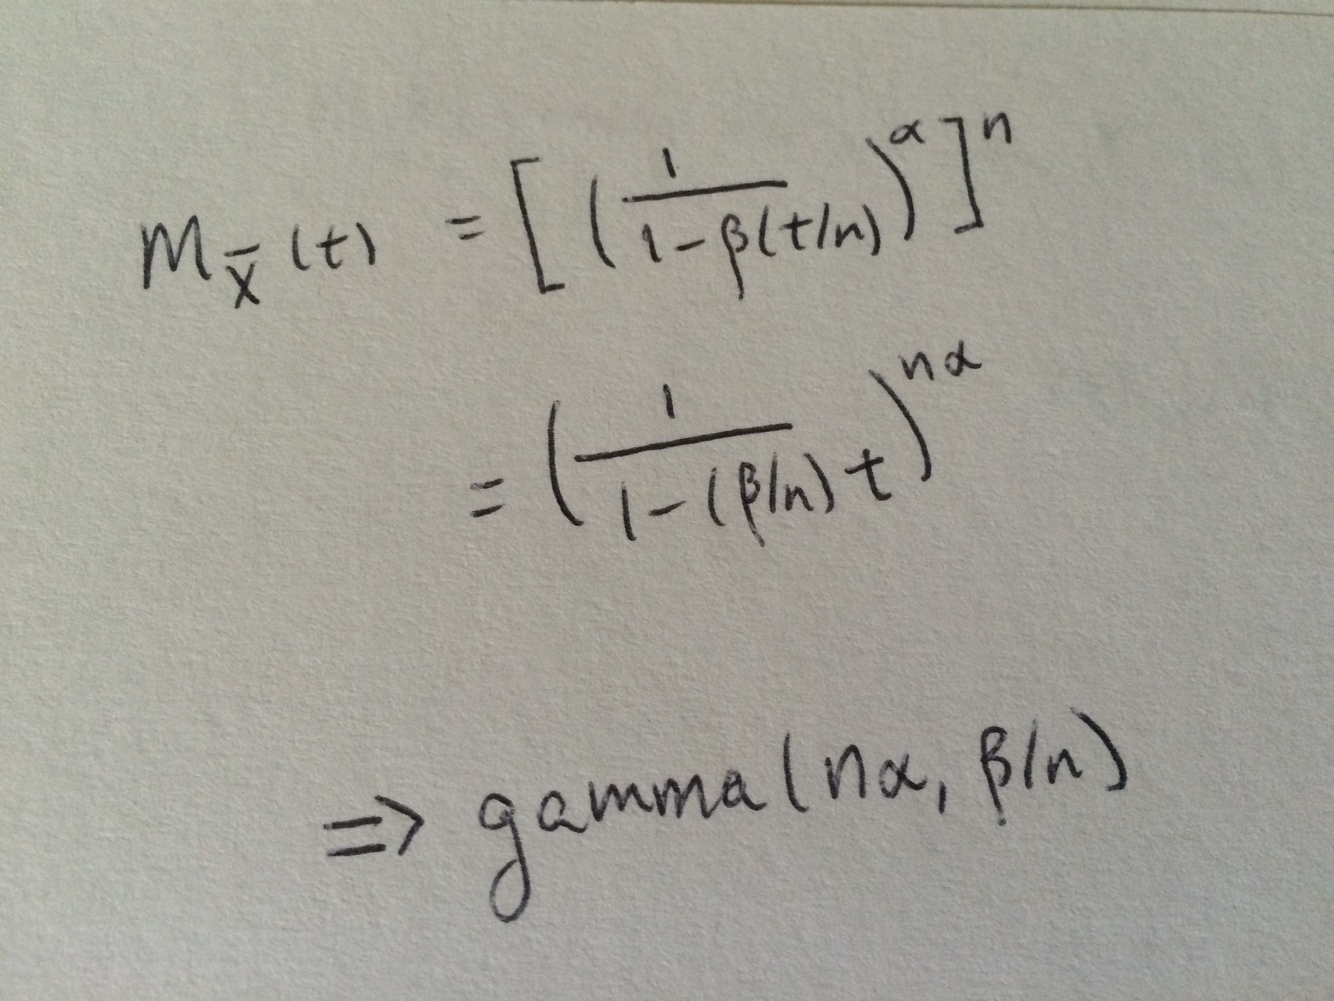 M_X̄ (t) = [ ( 1 / 1-β(t/n) )^α ]^n
= ( 1 / 1-(β/n)t )^nα
⇒ gamma(nα, β/n)